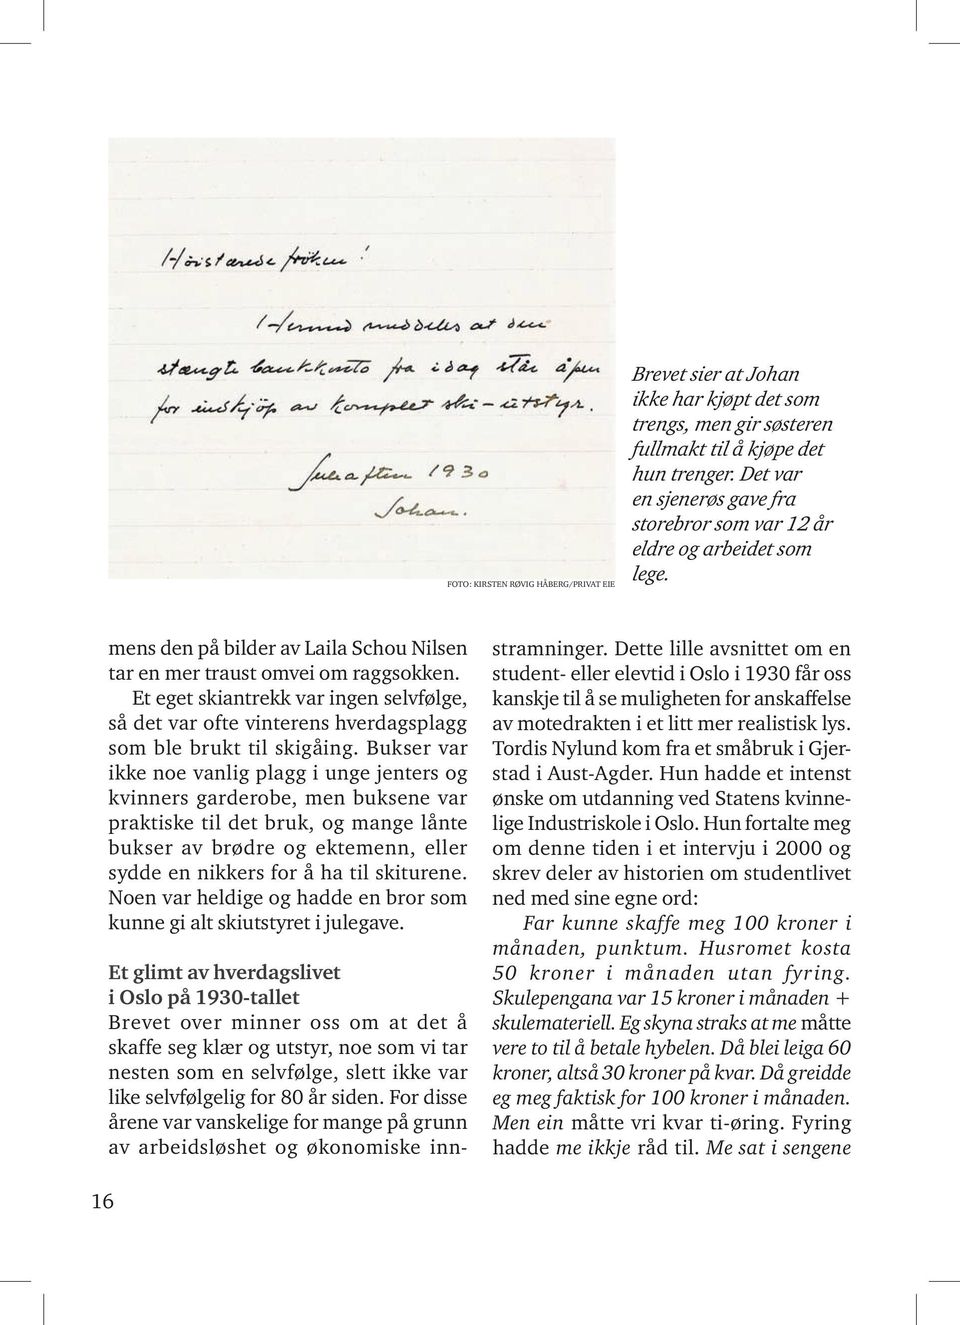 Höistærede fröken!
Hermed meddeles at den
stængte bankkonto fra idag står åpen
for indskjöp av komplet ski-utstyr.
Juleaften 1930
Johan.
FOTO: KIRSTEN RØVIG HÅBERG/PRIVAT EIE
Brevet sier at Johan
ikke har kjøpt det som
trengs, men gir søsteren
fullmakt til å kjøpe det
hun trenger. Det var
en sjenerøs gave fra
storebror som var 12 år
eldre og arbeidet som
lege.
mens den på bilder av Laila Schou Nilsen
tar en mer traust omvei om raggsokken.
Et eget skiantrekk var ingen selvfølge,
så det var ofte vinterens hverdagsplagg
som ble brukt til skigåing. Bukser var
ikke noe vanlig plagg i unge jenters og
kvinners garderobe, men buksene var
praktiske til det bruk, og mange lånte
bukser av brødre og ektemenn, eller
sydde en nikkers for å ha til skiturene.
Noen var heldige og hadde en bror som
kunne gi alt skiutstyret i julegave.
Et glimt av hverdagslivet
i Oslo på 1930-tallet
Brevet over minner oss om at det å
skaffe seg klær og utstyr, noe som vi tar
nesten som en selvfølge, slett ikke var
like selvfølgelig for 80 år siden. For disse
årene var vanskelige for mange på grunn
av arbeidsløshet og økonomiske inn-
stramninger. Dette lille avsnittet om en
student- eller elevtid i Oslo i 1930 får oss
kanskje til å se muligheten for anskaffelse
av motedrakten i et litt mer realistisk lys.
Tordis Nylund kom fra et småbruk i Gjer-
stad i Aust-Agder. Hun hadde et intenst
ønske om utdanning ved Statens kvinne-
lige Industriskole i Oslo. Hun fortalte meg
om denne tiden i et intervju i 2000 og
skrev deler av historien om studentlivet
ned med sine egne ord:
Far kunne skaffe meg 100 kroner i
månaden, punktum. Husromet kosta
50 kroner i månaden utan fyring.
Skulepengana var 15 kroner i månaden +
skulemateriell. Eg skyna straks at me måtte
vere to til å betale hybelen. Då blei leiga 60
kroner, altså 30 kroner på kvar. Då greidde
eg meg faktisk for 100 kroner i månaden.
Men ein måtte vri kvar ti-øring. Fyring
hadde me ikkje råd til. Me sat i sengene
16